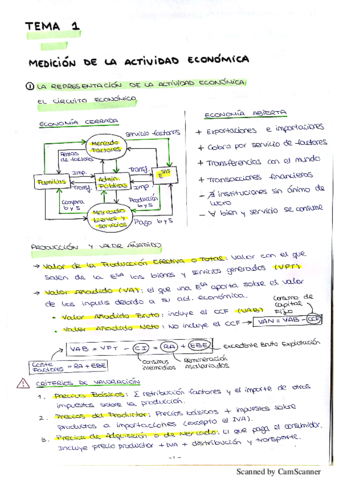 TEMA 1
MEDICIÓN DE LA ACTIVIDAD ECONÓMICA
① LA REPRESENTACIÓN DE LA ACTIVIDAD ECONÓMICA
EL CIRCUITO ECONÓMICO
ECONOMÍA CERRADA
Servicio factores
Mercado Factores
Rentas de factores
imp.
Transf.
Familias
Admin. Públicas
Transf.
imp
Compra b y s
Producción b y s
Mercado bienes y servicios
Pago b y s
ECONOMÍA ABIERTA
+ Exportaciones e importaciones
+ Cobro por servicio de factores
+ Transferencias con el mundo
+ Transacciones financieras
- ∄ instituciones sin ánimo de lucro
- ∀ bien y servicio se consume
PRODUCCIÓN Y VALOR AÑADIDO
→ Valor de la Producción Efectiva o Total: valor con el que
salen de la Eªª los bienes y servicios generados (VPT).
→ Valor Añadido (VA): el que una Eªª aporta sobre el valor
de los inputs debido a su act. económica.
Consumo de Capital Fijo
• Valor Añadido Bruto: incluye el CCF (VAB)
• Valor Añadido Neto: No incluye el CCF
VAN = VAB - CCF
VAB = VPT - CI = RA + EBE
Excedente Bruto Explotación
Coste Factores = RA + EBE
Consumos intermedios
Remuneración asalariados
⚠ CRITERIOS DE VALORACIÓN
1. Precios Básicos: Σ retribución factores y el importe de otros
impuestos sobre la producción.
2. Precios del Productor: Precios básicos + impuestos sobre
productos e importaciones (excepto el IVA).
3. Precios de Adquisición o de Mercado: lo que paga el consumidor.
Incluye precio productor + IVA + distribución y transporte.
-1-
Scanned by CamScanner